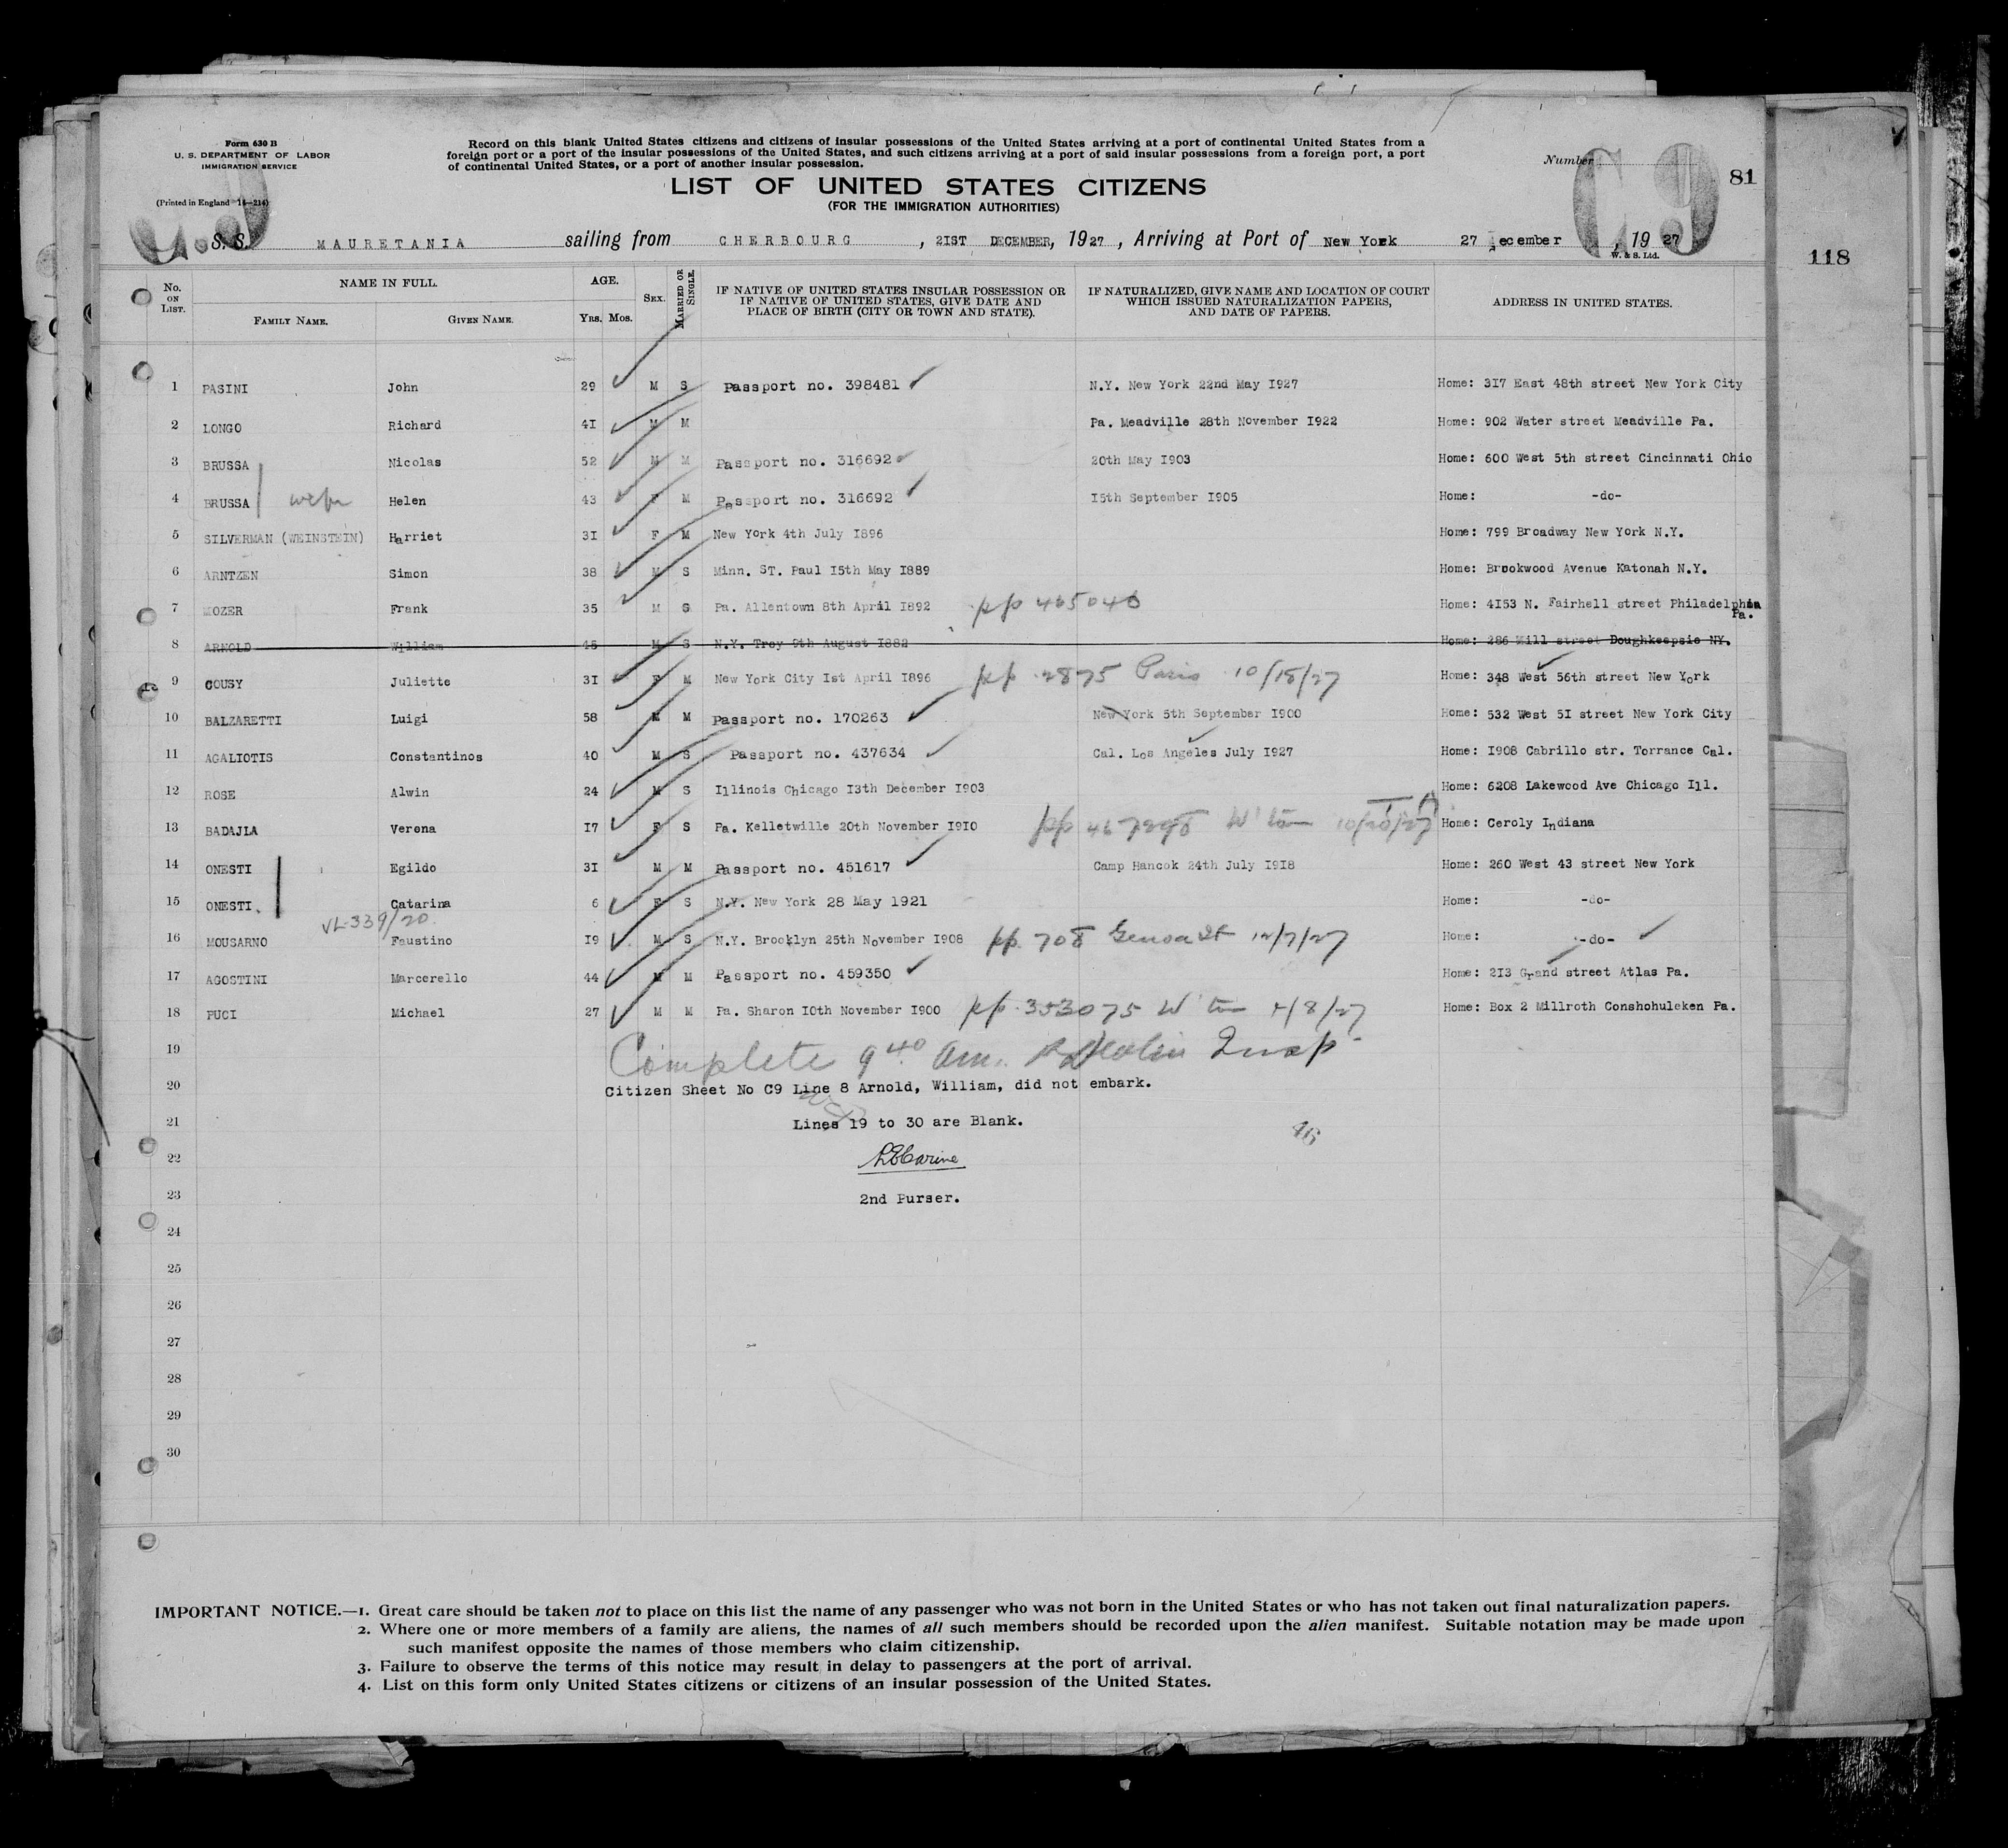 Form 630 B
U. S. DEPARTMENT OF LABOR
IMMIGRATION SERVICE
(Printed in England 14—214)
Record on this blank United States citizens and citizens of insular possessions of the United States arriving at a port of continental United States from a
foreign port or a port of the insular possessions of the United States, and such citizens arriving at a port of said insular possessions from a foreign port, a port
of continental United States, or a port of another insular possession.
Number
C9
81
118
LIST OF UNITED STATES CITIZENS
(FOR THE IMMIGRATION AUTHORITIES)
S.S. MAURETANIA sailing from CHERBOURG, 21ST DECEMBER, 1927, Arriving at Port of New York 27 ecember, 1927
W. & S. Ltd.
No. ON LIST. NAME IN FULL. FAMILY NAME. GIVEN NAME. AGE. Yrs. Mos. SEX. MARRIED OR SINGLE. IF NATIVE OF UNITED STATES INSULAR POSSESSION OR IF NATIVE OF UNITED STATES, GIVE DATE AND PLACE OF BIRTH (CITY OR TOWN AND STATE). IF NATURALIZED, GIVE NAME AND LOCATION OF COURT WHICH ISSUED NATURALIZATION PAPERS, AND DATE OF PAPERS. ADDRESS IN UNITED STATES.
1 PASINI John 29 M S Passport no. 398481 N.Y. New York 22nd May I927 Home: 3I7 East 48th street New York City
2 LONGO Richard 4I M M Pa. Meadville 28th November I922 Home: 902 Water street Meadville Pa.
3 BRUSSA Nicolas 52 M M Passport no. 316692 20th May I903 Home: 600 West 5th street Cincinnati Ohio
4 BRUSSA Helen 43 F M Passport no. 316692 I5th September I905 Home: -do-
5 SILVERMAN (WEINSTEIN) Harriet 3I F M New York 4th July I896 Home: 799 Broadway New York N.Y.
6 ARNTZEN Simon 38 M S Minn. ST. Paul I5th May I889 Home: Brookwood Avenue Katonah N.Y.
7 MOZER Frank 35 M S Pa. Allentown 8th April I892 pp 465046 Home: 4I53 N. Fairhell street Philadelphia Pa.
8 ARNOLD William 45 M S N.Y. Troy 9th August I882 Home: 286 Mill street Doughkeepsie NY.
9 COUSY Juliette 3I F M New York City Ist April I896 pp 2875 Paris 10/18/27 Home: 348 West 56th street New York
10 BALZARETTI Luigi 58 M M Passport no. 170263 New York 5th September I900 Home: 532 West 5I street New York City
11 AGALIOTIS Constantinos 40 M S Passport no. 437634 Cal. Los Angeles July I927 Home: I908 Cabrillo str. Torrance Cal.
12 ROSE Alwin 24 M S Illinois Chicago I3th December I903 Home: 6208 Lakewood Ave Chicago Ill.
13 BADAJLA Verona I7 F S Pa. Kelletwille 20th November I9I0 pp W'ton 10/20/27 Home: Ceroly Indiana
14 ONESTI Egildo 3I M M Passport no. 451617 Camp Hancok 24th July I9I8 Home: 260 West 43 street New York
15 ONESTI. Catarina 6 F S N.Y. New York 28 May 1921 Home: -do-
VL-339/20
16 MOUSARNO Faustino I9 M S N.Y. Brooklyn 25th November I908 pp. 708 Genoa 12/7/27 Home: -do-
17 AGOSTINI Marcerello 44 M M Passport no. 459350 Home: 2I3 Grand street Atlas Pa.
18 PUCI Michael 27 M M Pa. Sharon I0th November I900 pp 353075 W'ton 4/8/27 Home: Box 2 Millroth Conshohuleken Pa.
19 Complete 9 40 am. Insp
20 Citizen Sheet No C9 Line 8 Arnold, William, did not embark.
21 Lines 19 to 30 are Blank.
22
23 2nd Purser.
24
25
26
27
28
29
30
IMPORTANT NOTICE.—1. Great care should be taken not to place on this list the name of any passenger who was not born in the United States or who has not taken out final naturalization papers.
2. Where one or more members of a family are aliens, the names of all such members should be recorded upon the alien manifest. Suitable notation may be made upon
such manifest opposite the names of those members who claim citizenship.
3. Failure to observe the terms of this notice may result in delay to passengers at the port of arrival.
4. List on this form only United States citizens or citizens of an insular possession of the United States.